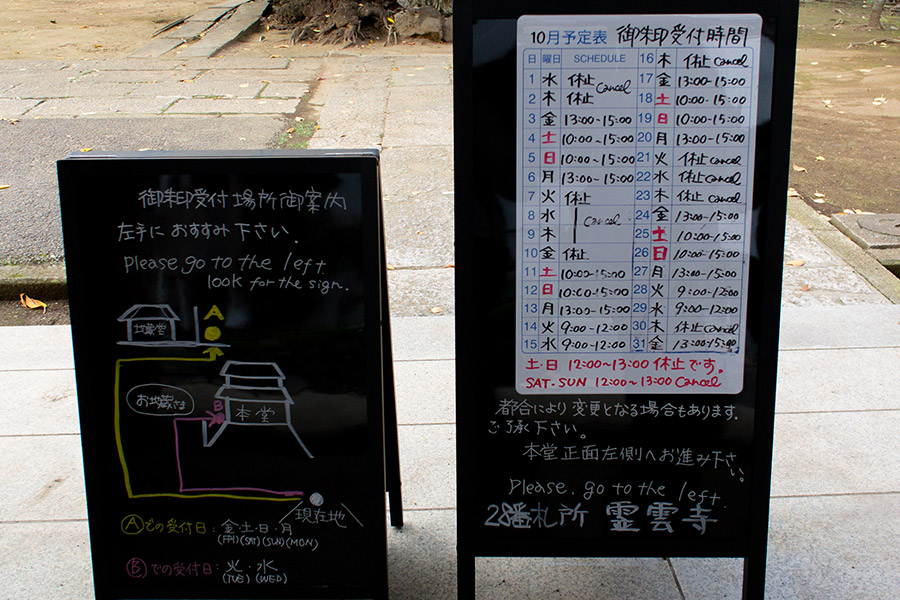 御朱印受付場所御案内
左手におすすみ下さい.
Please go to the left
look for the sign.
A
地蔵堂
お地蔵さま
B
本堂
現在地
Ⓐでの受付日: 金・土・日・月
(FRI)(SAT)(SUN)(MON)
Ⓑでの受付日: 火・水
(TUE)(WED)
10月予定表 御朱印受付時間
日 曜日 SCHEDULE
1 水 休止 cancel
2 木 休止
3 金 13:00-15:00
4 土 10:00~15:00
5 日 10:00~15:00
6 月 13:00~15:00
7 火 休止
8 水 cancel
9 木
10 金 休止
11 土 10:00-15:00
12 日 10:00-15:00
13 月 13:00-15:00
14 火 9:00-12:00
15 水 9:00-12:00
16 木 休止 cancel
17 金 13:00-15:00
18 土 10:00-15:00
19 日 10:00-15:00
20 月 13:00-15:00
21 火 休止 cancel
22 水 休止 cancel
23 木 休止 cancel
24 金 13:00-15:00
25 土 10:00-15:00
26 日 10:00-15:00
27 月 13:00-15:00
28 火 9:00-12:00
29 水 9:00-12:00
30 木 休止 cancel
31 金 13:00-15:00
土・日 12:00~13:00 休止です。
SAT・SUN 12:00~13:00 Cancel
都合により変更となる場合もあります.
ご了承下さい。
本堂正面左側へお進み下さい。
Please. go to the left
28番札所 霊雲寺